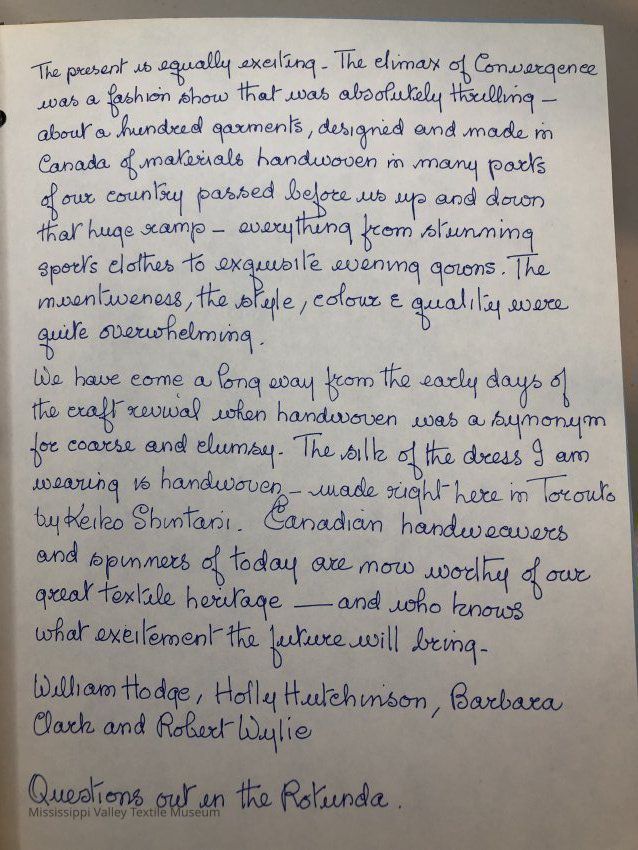 The present is equally exciting - The climax of Convergence
was a fashion show that was absolutely thrilling -
about a hundred garments, designed and made in
Canada of materials handwoven in many parts
of our country passed before us up and down
that huge ramp - everything from stunning
sports clothes to exquisite evening gowns. The
inventiveness, the style, colour & quality were
quite overwhelming.
We have come a long way from the early days of
the craft revival when handwoven was a synonym
for coarse and clumsy. The silk of the dress I am
wearing is handwoven - made right here in Toronto
by Keiko Shintani. Canadian handweavers
and spinners of today are now worthy of our
great textile heritage — and who knows
what excitement the future will bring -
William Hodge, Holly Hutchinson, Barbara
Clark and Robert Wylie
Questions out in the Rotunda.
Mississippi Valley Textile Museum